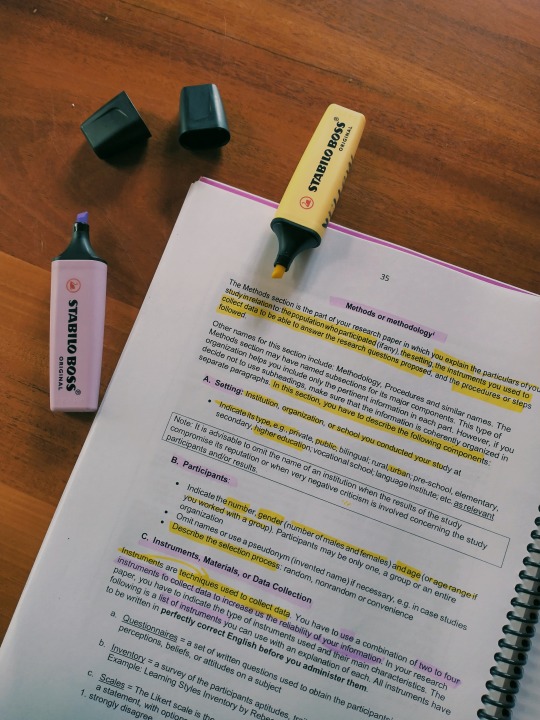 STABILO BOSS
ORIGINAL
STABILO BOSS
ORIGINAL
35
Methods or methodology¹
The Methods section is the part of your research paper in which you explain the particulars of your
study in relation to the population who participated (if any), the setting, the instruments you used to
collect data to be able to answer the research questions proposed, and the procedures or steps
followed.
Other names for this section include: Methodology, Procedures and similar names. The
Methods section may have named subsections for its major components. This type of
organization helps you include only the pertinent information in each part. However, if you
decide not to use subheadings, make sure that the information is coherently organized in
separate paragraphs. In this section, you have to describe the following components:
A. Setting: Institution, organization, or school you conducted your study at
• Indicate its type, e.g. private, public, bilingual, rural, urban, pre-school, elementary,
secondary, higher education, vocational school, language institute; etc. as relevant
Note: It is advisable to omit the name of an institution when the results of the study
compromise its reputation or when very negative criticism is involved concerning the study
participants and/or results.
B. Participants:
• Indicate the number, gender (number of males and females) and age (or age range if
you worked with a group). Participants may be only one, a group or an entire
organization
• Omit names or use a pseudonym (invented name) if necessary, e.g. in case studies
• Describe the selection process: random, nonrandom or convenience
C. Instruments, Materials, or Data Collection
Instruments are techniques used to collect data. You have to use a combination of two to four
instruments to collect data to increase us the reliability of your information. In your research
paper, you have to indicate the type of instruments used and their main characteristics. The
following is a list of instruments you can use with an explanation of each. All instruments have
to be written in perfectly correct English before you administer them.
a. Questionnaires = a set of written questions used to obtain the participants'
perceptions, beliefs, or attitudes on a subject
b. Inventory = a survey of the participants aptitudes,
Example: Learning Styles Inventory by
c. Scales = The Likert scale is the
a statement, with
1. strongly disagree